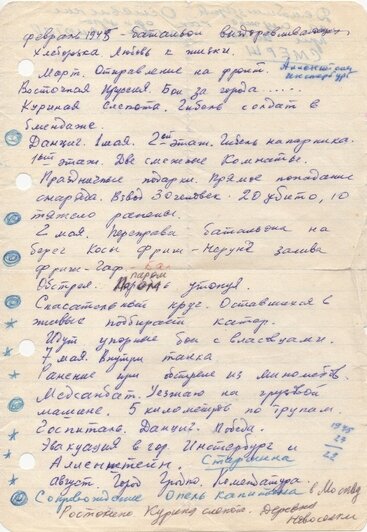 февраль 1945 - батальон выздоравливающих
Хлеборезка. Любовь к жизни.
СМЕРШ
Март. Отправление на фронт. Алленштайн
Инстербург
Восточная Пруссия. Бои за города .....
Куриная слепота. Гибель солдат в
блиндаже.
Данциг. 1 мая. 2ой этаж. Гибель напарника.
1ый этаж. Две смежные комнаты.
Праздничные подарки. Прямое попадание
снаряда. Взвод 30 человек. 20 убито, 10
тяжело ранены.
2 мая. Переправа батальона на
берег Косы Фриш-Нерунг залива
Фриш-Гаф.
Обстрел. паром утонул.
Спасательный круг. Оставшихся в
живых подбирает катер.
Идут упорные бои с власовцами.
7 мая. Внутри танка
Ранение при обстреле из миномётов.
Медсанбат. Уезжаю на грузовой
машине. 5 километров по трупам.
Госпиталь. Данциг. Победа.
Эвакуация в гор Инстербург и
Алленштейн. Старшина
1945
23
22
август Город Гродно. Комендатура.
Сопровождение Опель капитана в Москву
Ростокино Куриная слепота. Деревня
Новоселки